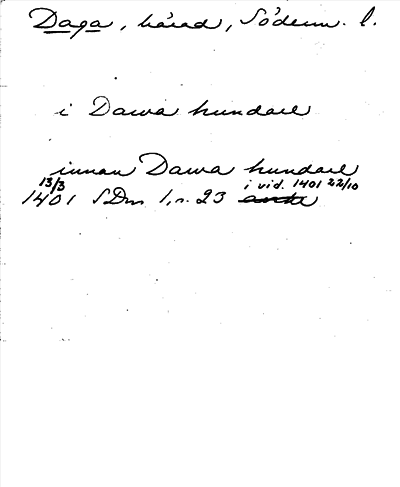 Daga, härad, Söderm. l.
i Dawa hundare
innan Dawa hundare
13/3 i vid. 1401 22/10
1401 SDns 1, n. 23